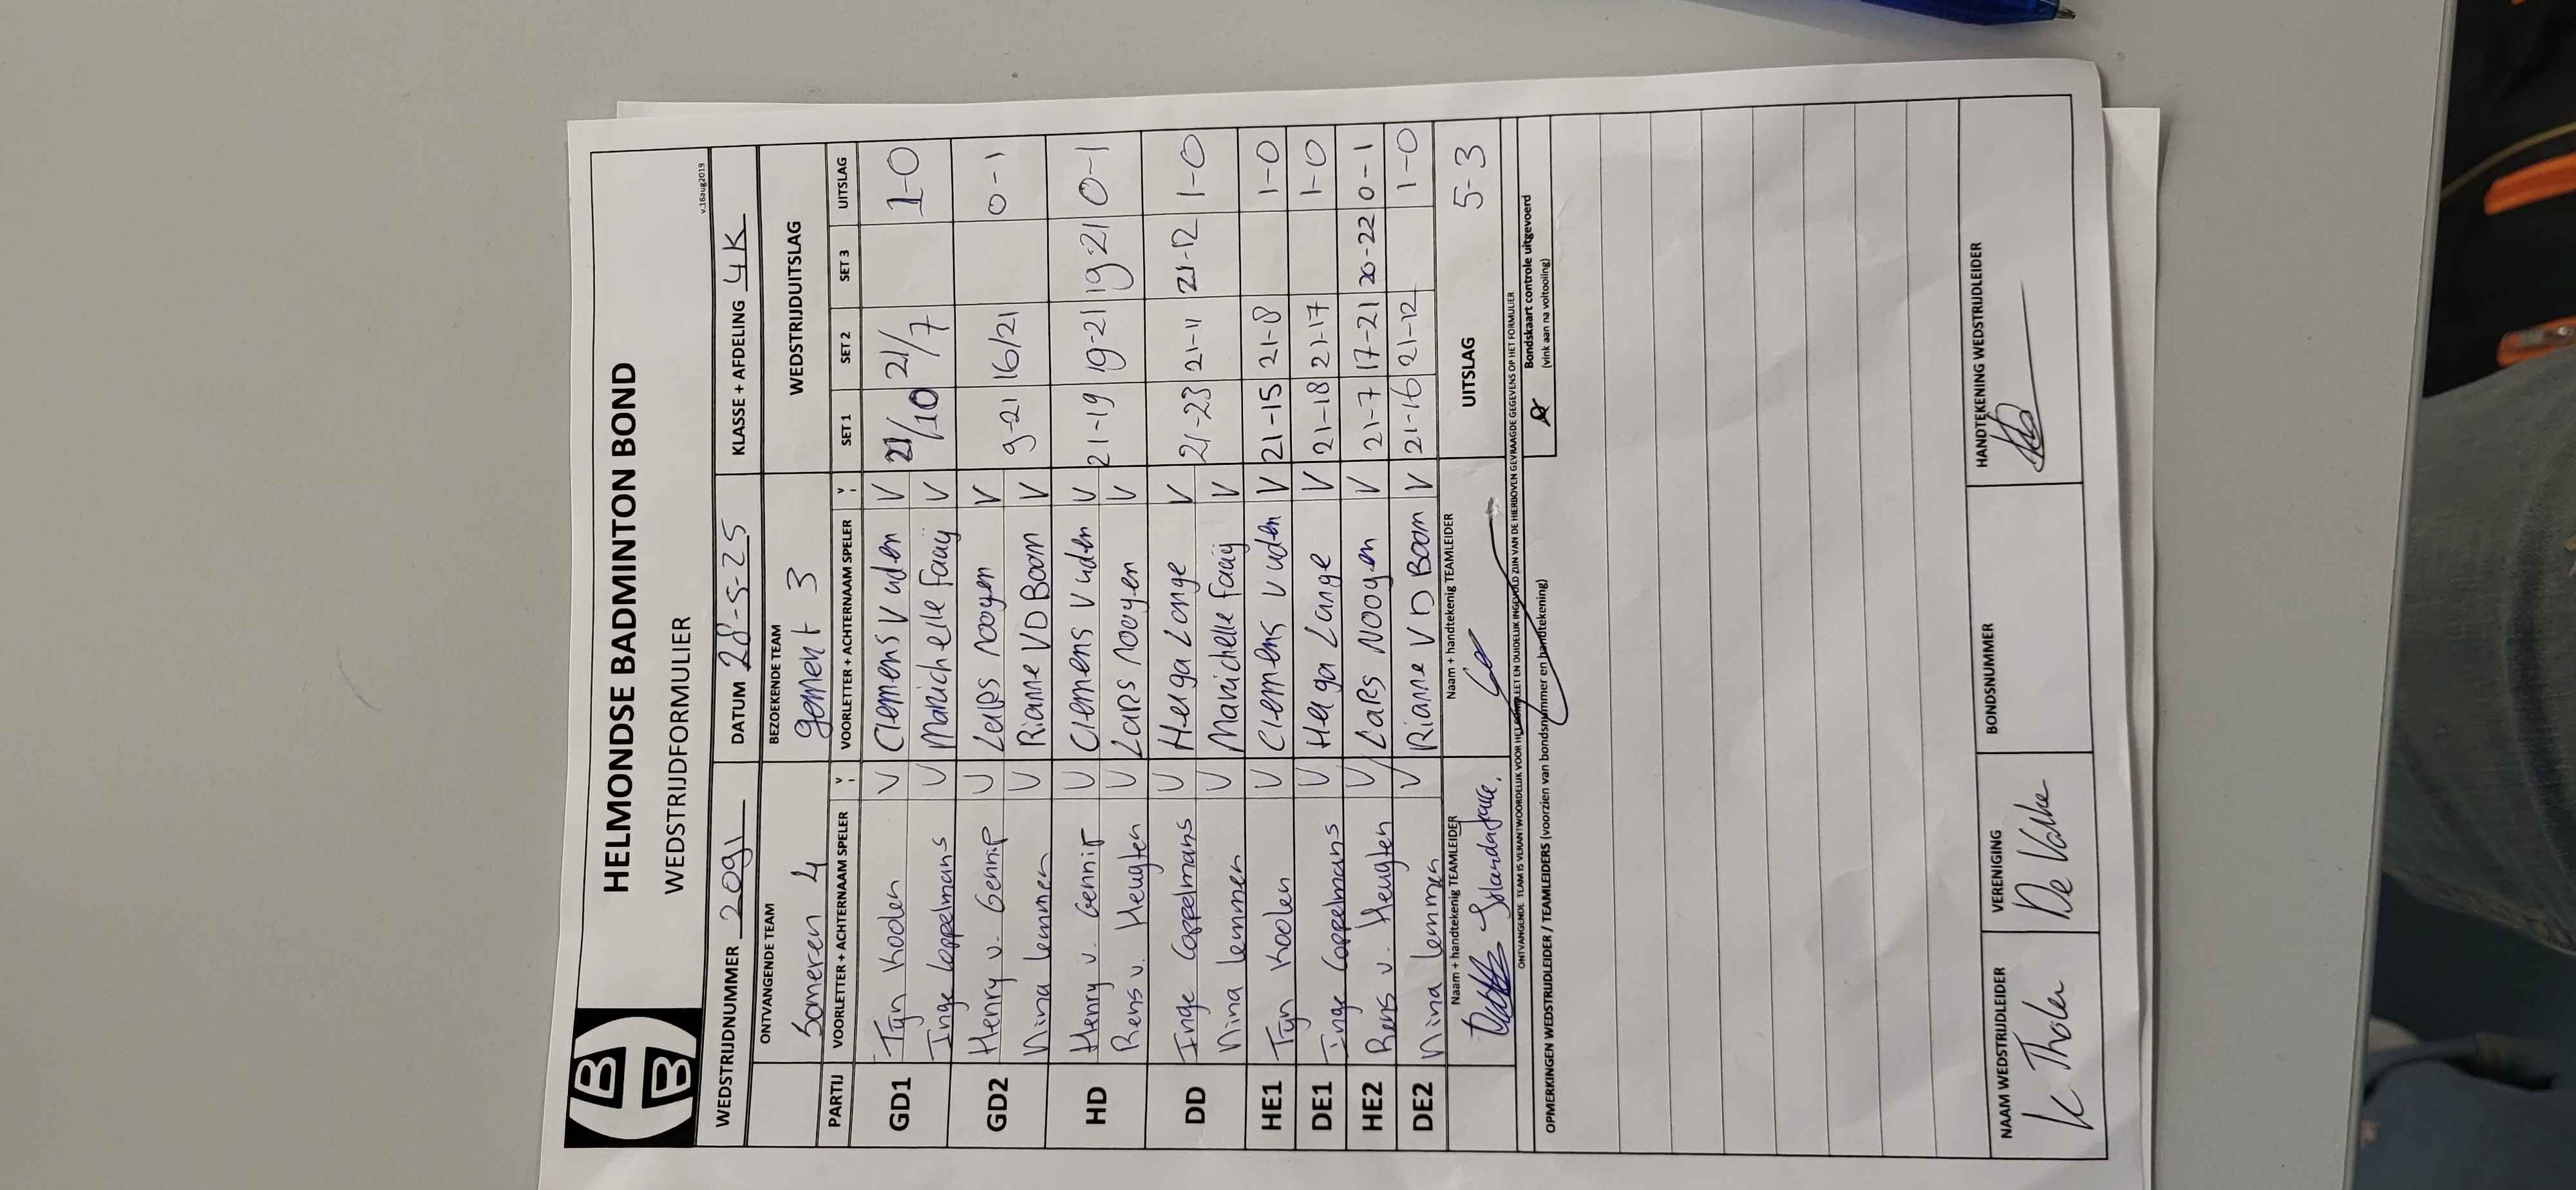 HBB
HELMONDSE BADMINTON BOND
WEDSTRIJDFORMULIER
v.16aug2019
WEDSTRIJDNUMMER 2091 DATUM 28-5-25 KLASSE + AFDELING 4K
ONTVANGENDE TEAM BEZOEKENDE TEAM WEDSTRIJDUITSLAG
Someren 4 gemert 3
PARTIJ VOORLETTER + ACHTERNAAM SPELER V VOORLETTER + ACHTERNAAM SPELER V SET 1 SET 2 SET 3 UITSLAG
GD1 Tyn Koolen V Clemens V uden V 21/10 21/7 1-0
Inge Coppelmans V Marichelle Faaij V
GD2 Henry v. Gennip V Lars Nooyen V 9-21 16/21 0-1
Nina Lemmen V Rianne VD Boom V
HD Henry v. Gennip V Clemens V uden V 21-19 19-21 19-21 0-1
Rens v. Heugten V Lars Nooyen V
DD Inge Coppelmans V Helga Lange V 21-23 21-11 21-12 1-0
Nina Lemmen V Marichelle Faaij V
HE1 Tyn Koolen V Clemens V uden V 21-15 21-8 1-0
DE1 Inge Coppelmans V Helga Lange V 21-18 21-17 1-0
HE2 Rens v. Heugten V Lars Nooyen V 21-7 17-21 20-22 0-1
DE2 Nina Lemmen V Rianne VD Boom V 21-16 21-12 1-0
Naam + handtekenig TEAMLEIDER Naam + handtekenig TEAMLEIDER UITSLAG 5-3
ONTVANGENDE TEAM IS VERANTWOORDELIJK VOOR HET COMPLEET EN DUIDELIJK INGEVULD ZIJN VAN DE HIERBOVEN GEVRAAGDE GEGEVENS OP HET FORMULIER
OPMERKINGEN WEDSTRIJDLEIDER / TEAMLEIDERS (voorzien van bondsnummer en handtekening)
Bondskaart controle uitgevoerd
(vink aan na voltooiing)
NAAM WEDSTRIJDLEIDER VERENIGING BONDSNUMMER HANDTEKENING WEDSTRIJDLEIDER
K Tholen De Valke